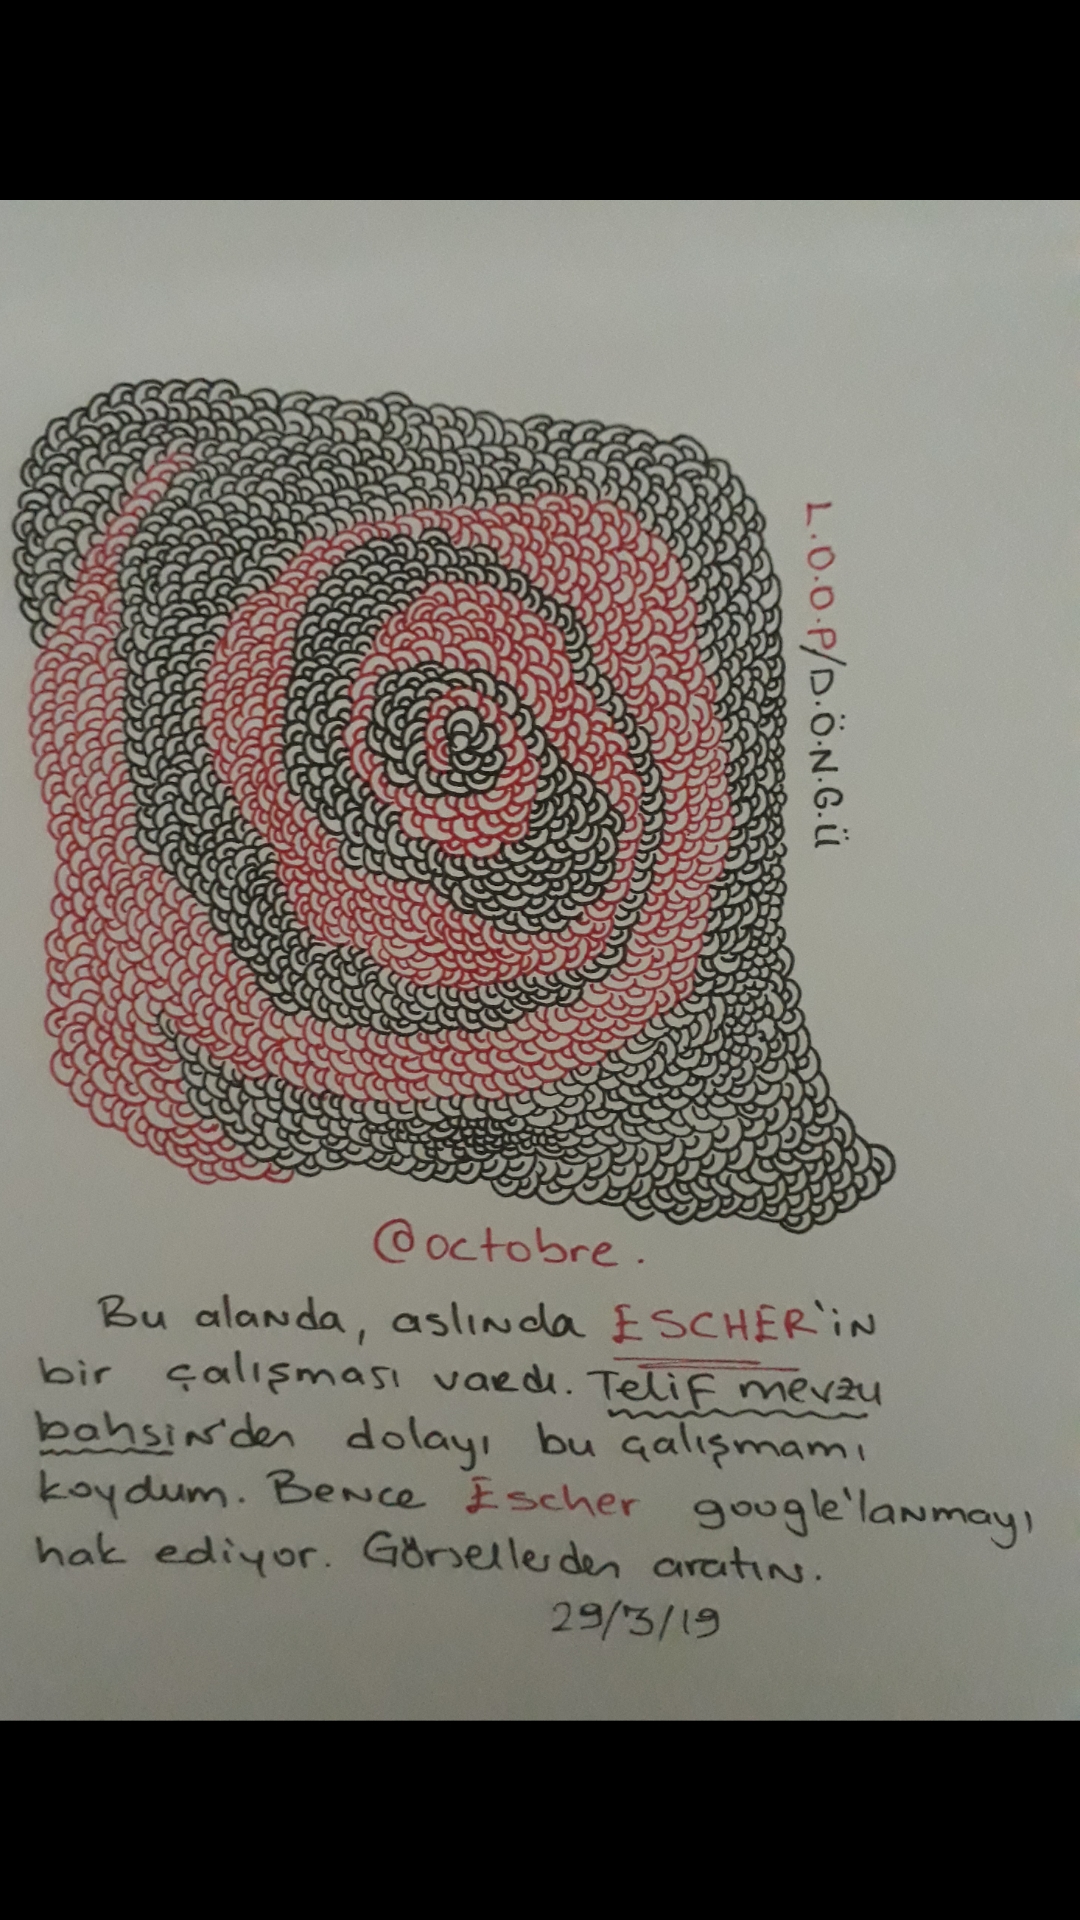 L.O.O.P/D.Ö.N.G.Ü
@octobre.
Bu alanda, aslında ESCHER'in
bir çalışması vardı. Telif mevzu
bahsin'den dolayı bu çalışmamı
koydum. Bence Escher google'lanmayı
hak ediyor. Görsellerden aratın.
29/3/19